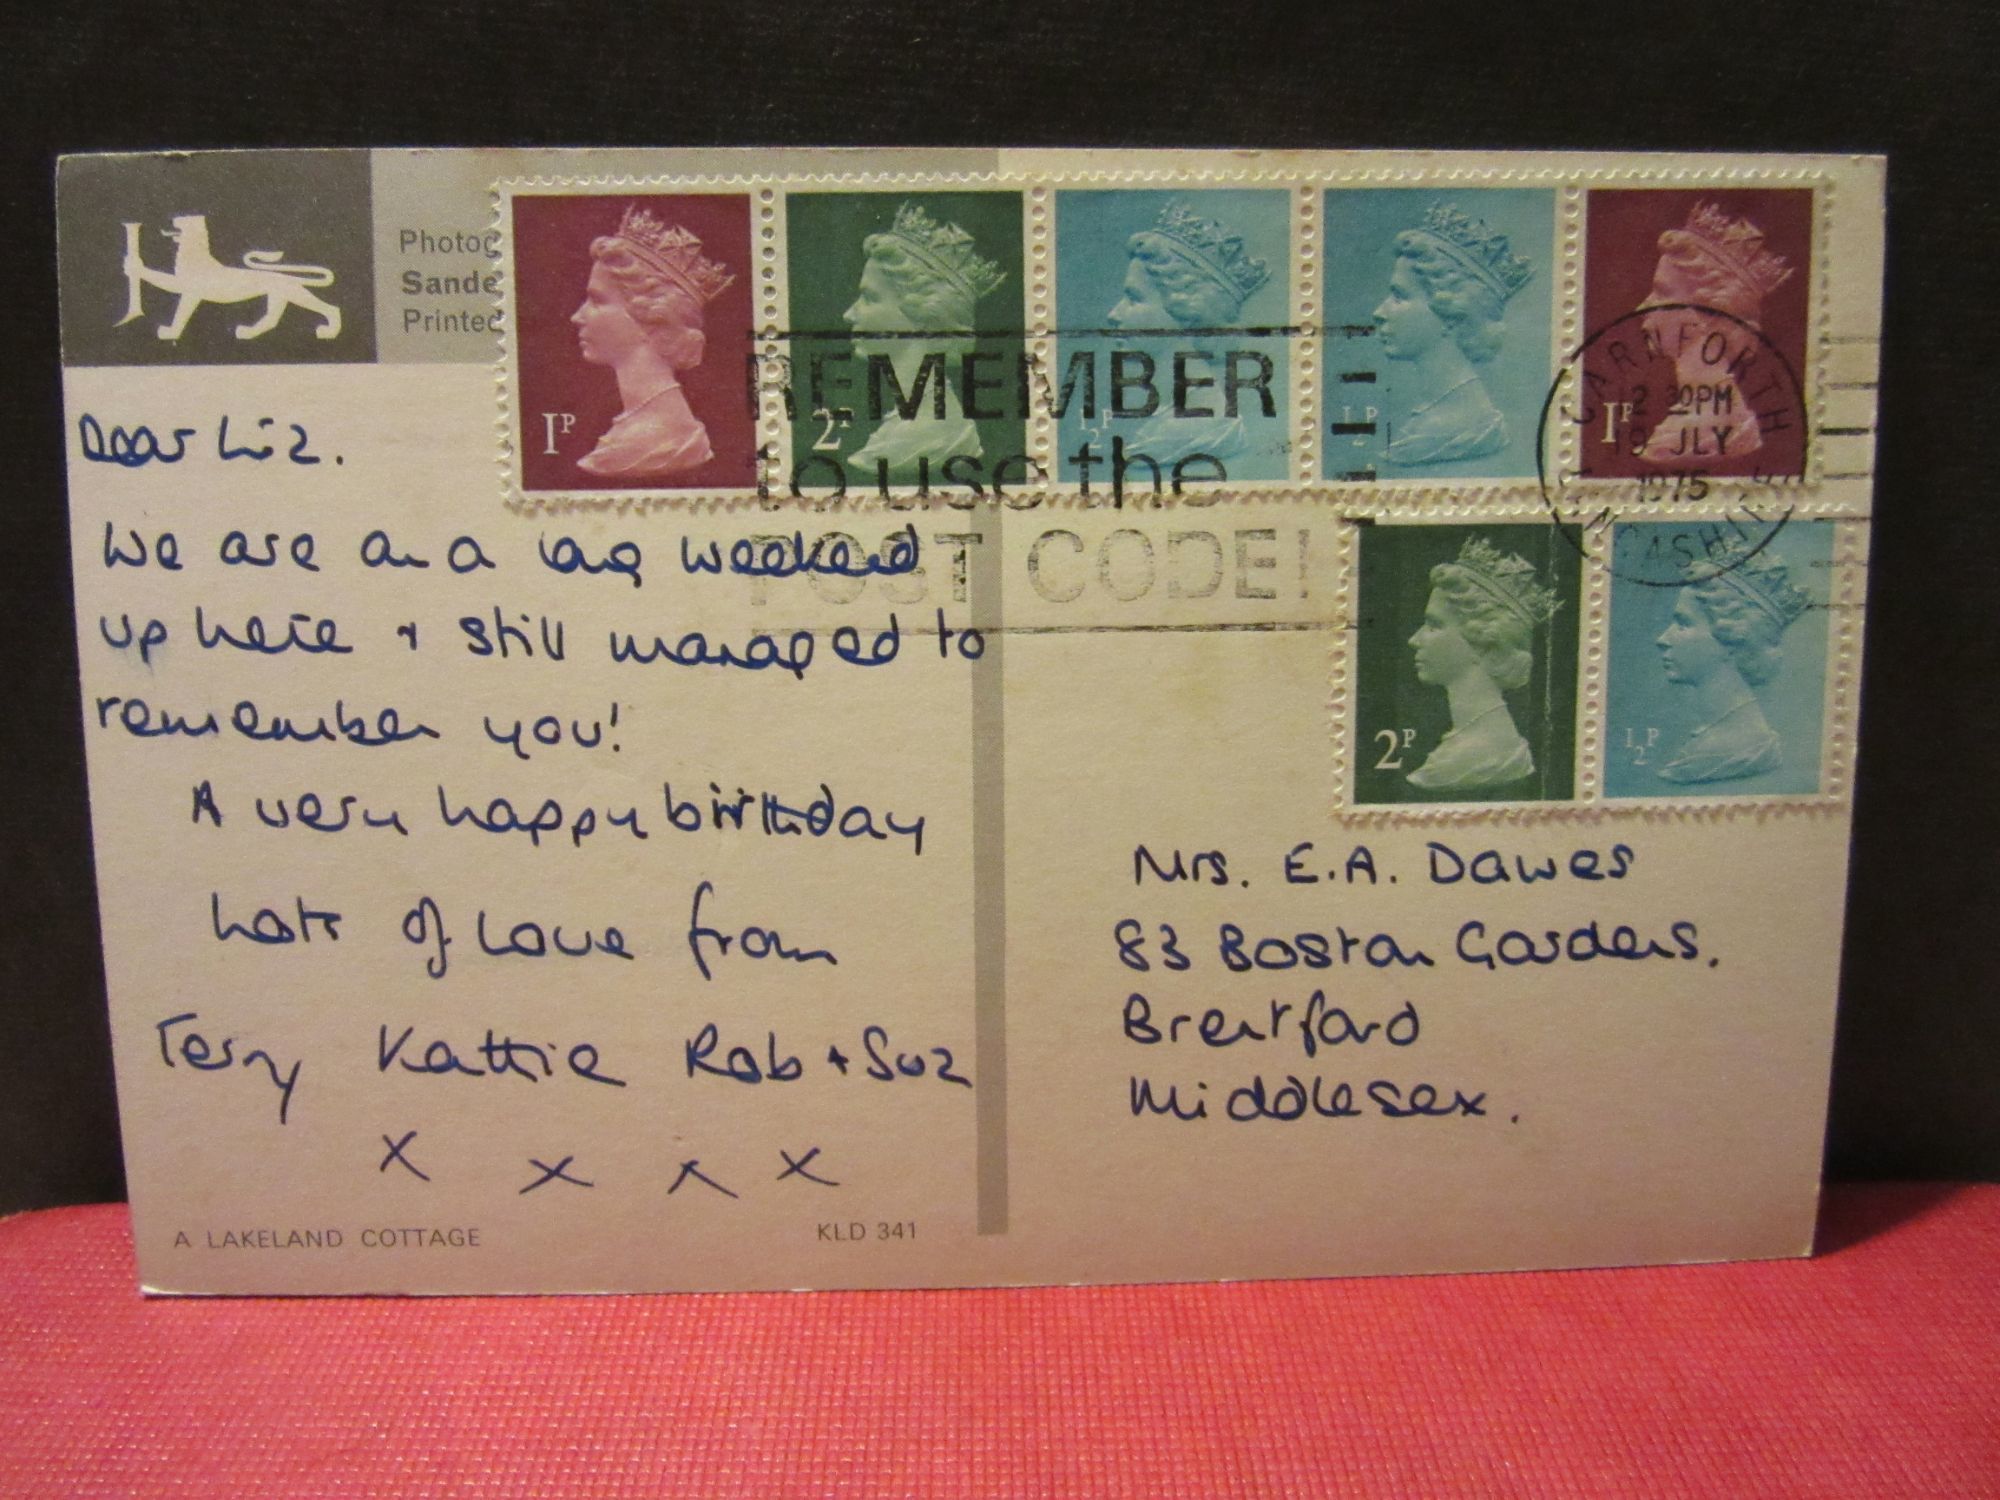 Photog
Sande
Printed
1P
2P
½P
½P
1P
REMEMBER
to use the
POST CODE!
CARNFORTH
2 30PM
19 JLY
1975
LANCASHIRE
2P
½P
Dear Liz.
We are on a long weekend
up here + still managed to
remember you!
A very happy birthday
Lots of love from
Terry Kattie Rob + Suz
x x x x
Mrs. E.A. Dawes
83 Boston Gardens.
Brentford
Middlesex.
A LAKELAND COTTAGE
KLD 341